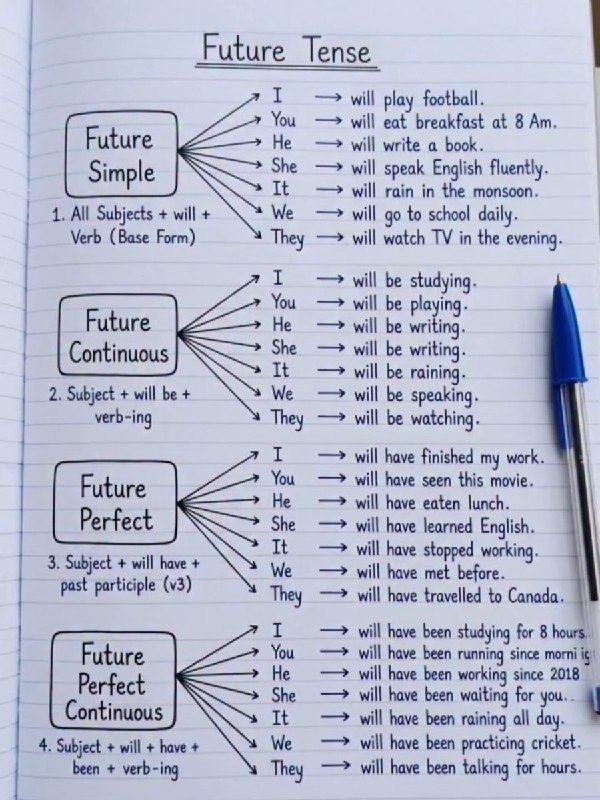 Future Tense
Future
Simple
1. All Subjects + will +
Verb (Base Form)
I → will play football.
You → will eat breakfast at 8 Am.
He → will write a book.
She → will speak English fluently.
It → will rain in the monsoon.
We → will go to school daily.
They → will watch TV in the evening.
Future
Continuous
2. Subject + will be +
verb-ing
I → will be studying.
You → will be playing.
He → will be writing.
She → will be writing.
It → will be raining.
We → will be speaking.
They → will be watching.
Future
Perfect
3. Subject + will have +
past participle (v3)
I → will have finished my work.
You → will have seen this movie.
He → will have eaten lunch.
She → will have learned English.
It → will have stopped working.
We → will have met before.
They → will have travelled to Canada.
Future
Perfect
Continuous
4. Subject + will + have +
been + verb-ing
I → will have been studying for 8 hours.
You → will have been running since
He → will have been working since 2018
She → will have been waiting for you..
It → will have been raining all day.
We → will have been practicing cricket.
They → will have been talking for hours.